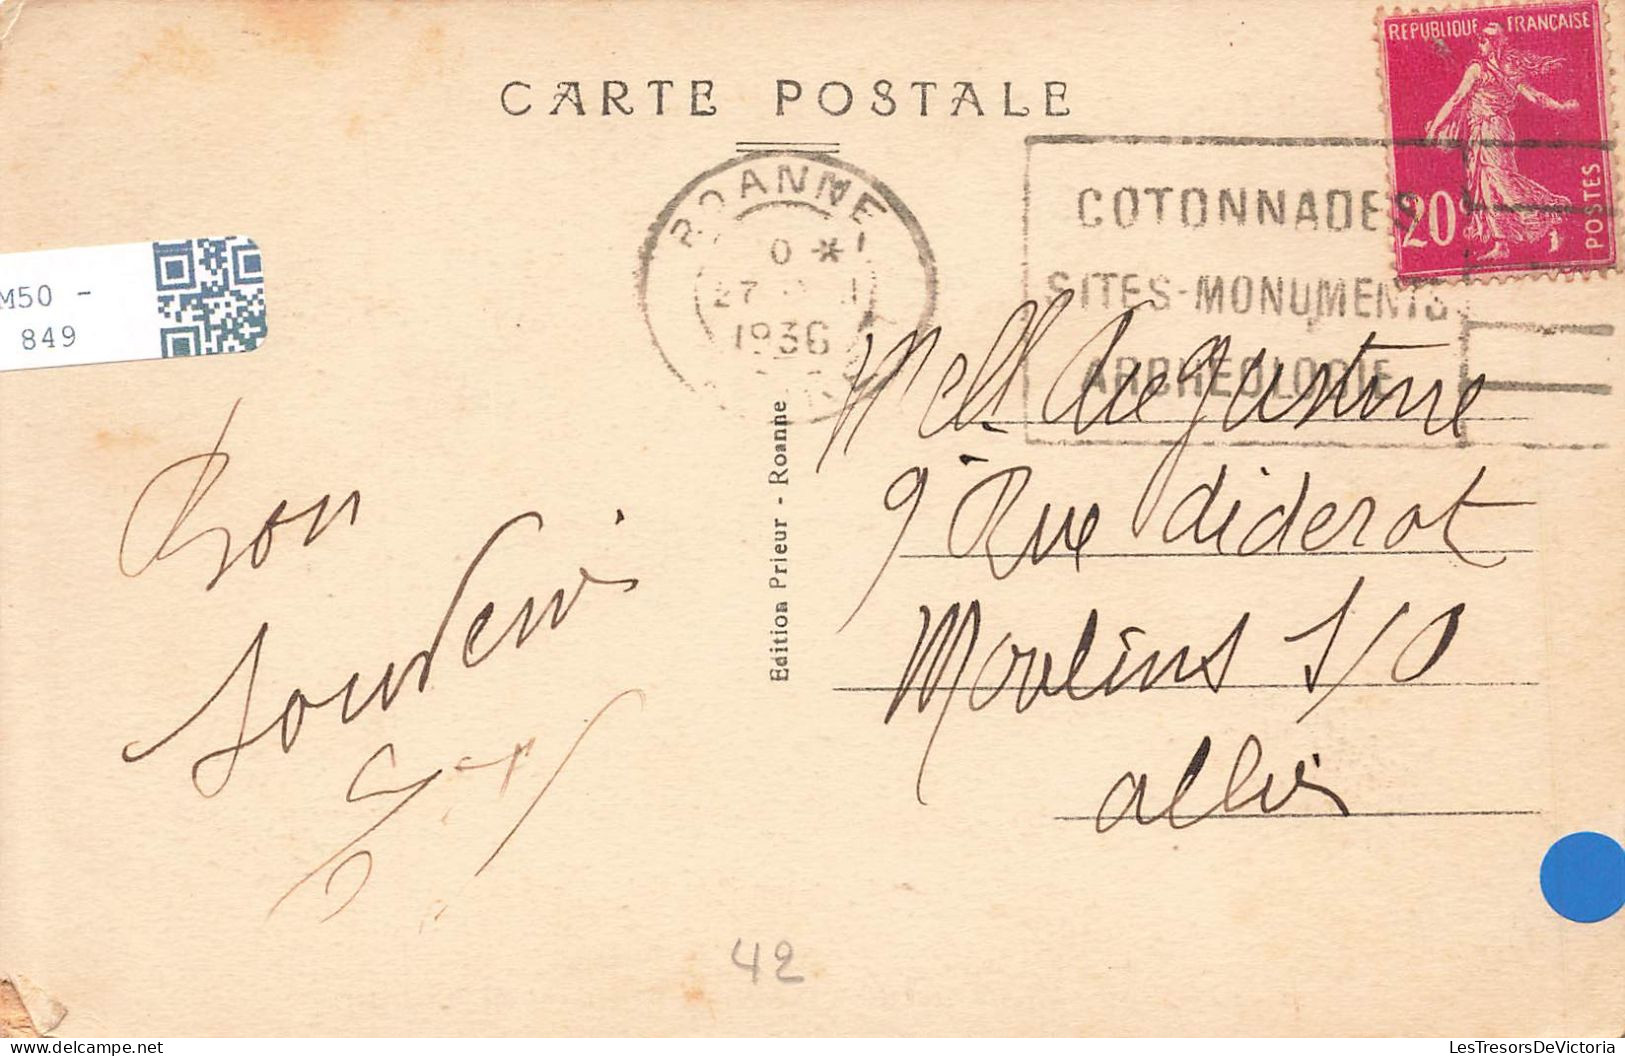 CARTE POSTALE
REPUBLIQUE FRANÇAISE
20
POSTES
ROANNE
27
1936
COTONNADES
SITES-MONUMENTS
ARCHEOLOGIE
M50 -
849
Edition Prieur - Roanne
Melle Augustine
9 Rue diderot
Moulins S/O
allier
Bon
souvenir
42
LesTresorsDeVictoria